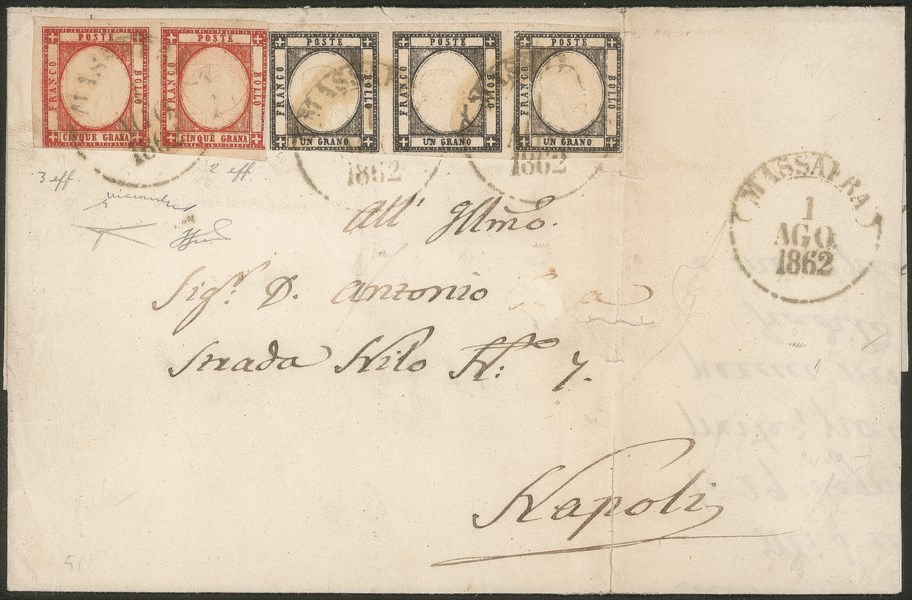 POSTE FRANCO BOLLO CINQUE GRANA
POSTE FRANCO BOLLO CINQUE GRANA
POSTE FRANCO BOLLO UN GRANO
POSTE FRANCO BOLLO UN GRANO
POSTE FRANCO BOLLO UN GRANO
186
1862
1862
3 eff
2 eff.
MASSAFRA
1
AGO
1862
All' Illmo.
Sigr. D. Antonio
Strada Nilo No: 7.
Napoli